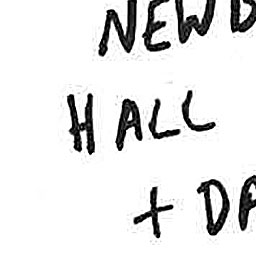 NEWB
HALL
+ DA